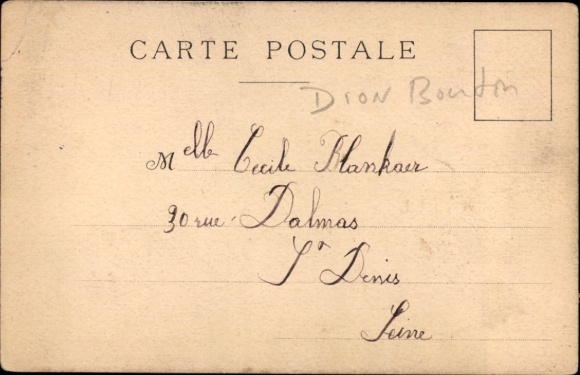 CARTE POSTALE
Dion Bouton
Melle Cecile Blankaer
30 rue Dalmas
St Denis
Seine